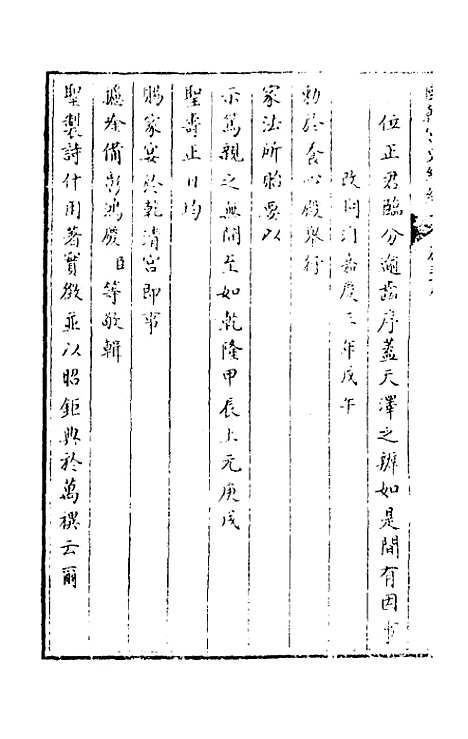 位正君臨分滷齒序蓋天澤之辨如是間有因事
改同門嘉慶三年戊午
勅於養心殿舉行
家法所貽要以
示篤親之無間至如乾隆甲辰上元庚戌
聖壽正日均
賜家宴於乾清宮即事
攄吟備彰鴻慶臣等敬輯
聖製詩什用著實徵並以昭鉅典於萬禩云爾